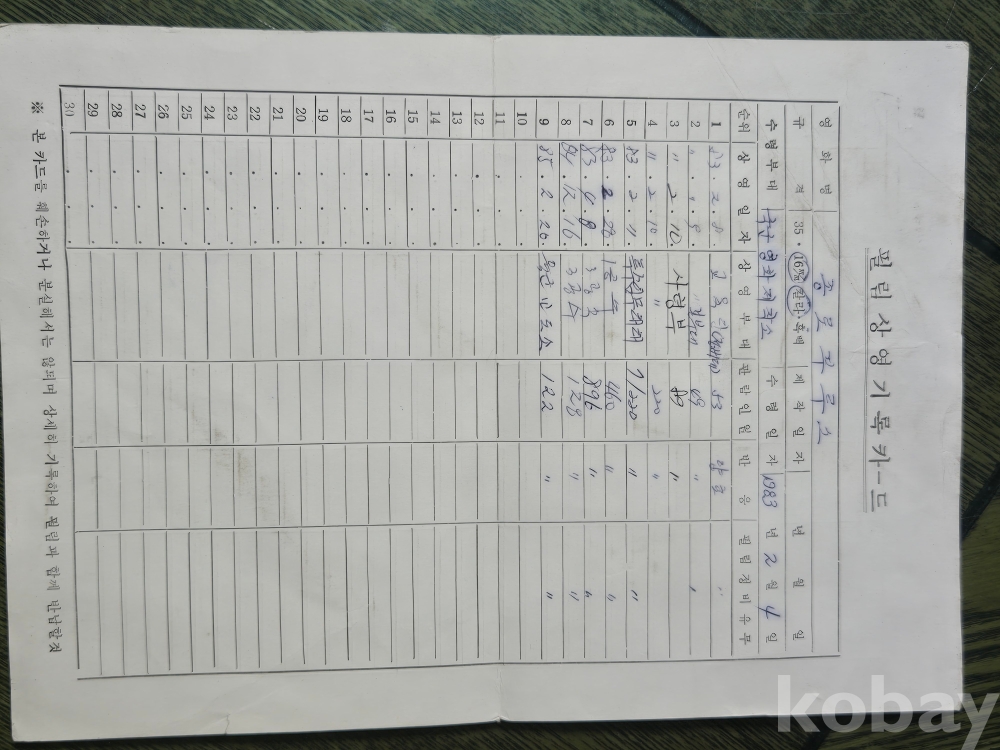 필림상영기록카ー드
영화명 종로 부루스
규격 35·16㎜ 칼라·흑백 제작일자 년 월 일
수령부대 국군영화제작소 수령일자 1983년 2월 4일
순위 상영일자 상영부대 관람인원 반응 필림정비유무
1 83. 2. 8. 53 양호 〃
2 〃 . 〃 . 8. 〃 69 〃 〃
3 〃 2 10. 사령부 89 〃
4 〃 . 2. 10. 〃 220 〃
5 83. 2. 11. 220 〃 〃
6 83. 2. 28. 460 〃 〃
7 83. 8. 896 〃 〃
8 84. 12. 16. 128 〃 〃
9 85. 2. 20. 교도소 122 〃 〃
10
11
12
13
14
15
16
17
18
19
20
21
22
23
24
25
26
27
28
29
30
※ 본 카드를 훼손하거나 분실해서는 않되며 상세히 기록하여 필림과 함께 반납할것
kobay